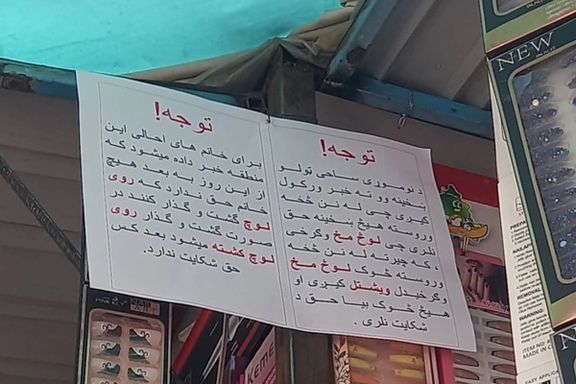 توجه!
د نوموزی ساحی تولو
بخینه وو ته خبر ورکول
کیږی چی له نن څخه
وروسته هیڅ بخینه حق
نلری چی لوڅ مخ وګرځی
، که چیرته له نن څخه
وروسته څوک لوڅ مخ
وګرځیدل ویشتل کیږی او
هیڅ څوک بیا حق د
شکایت نلری .
توجه!
برای خانم های احالی این
منطقه خبر داده میشود که
از این روز به بعد هیچ
خانم حق ندارد که روی
لوچ گشت و گذار کنند در
صورت گشت و گذار روی
لوچ کشته میشود بعد کس
حق شکایت ندارد.
NEW